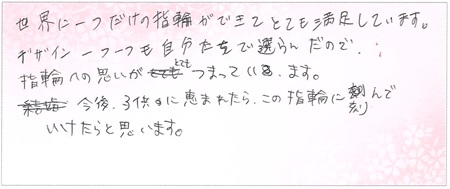 世界に一つだけの指輪ができてとても満足しています。
デザイン一つ一つも自分たちで選らんだので、
指輪への思いがとてもつまっています。
今後、子供に恵まれたら、この指輪に刻んで
いけたらと思います。